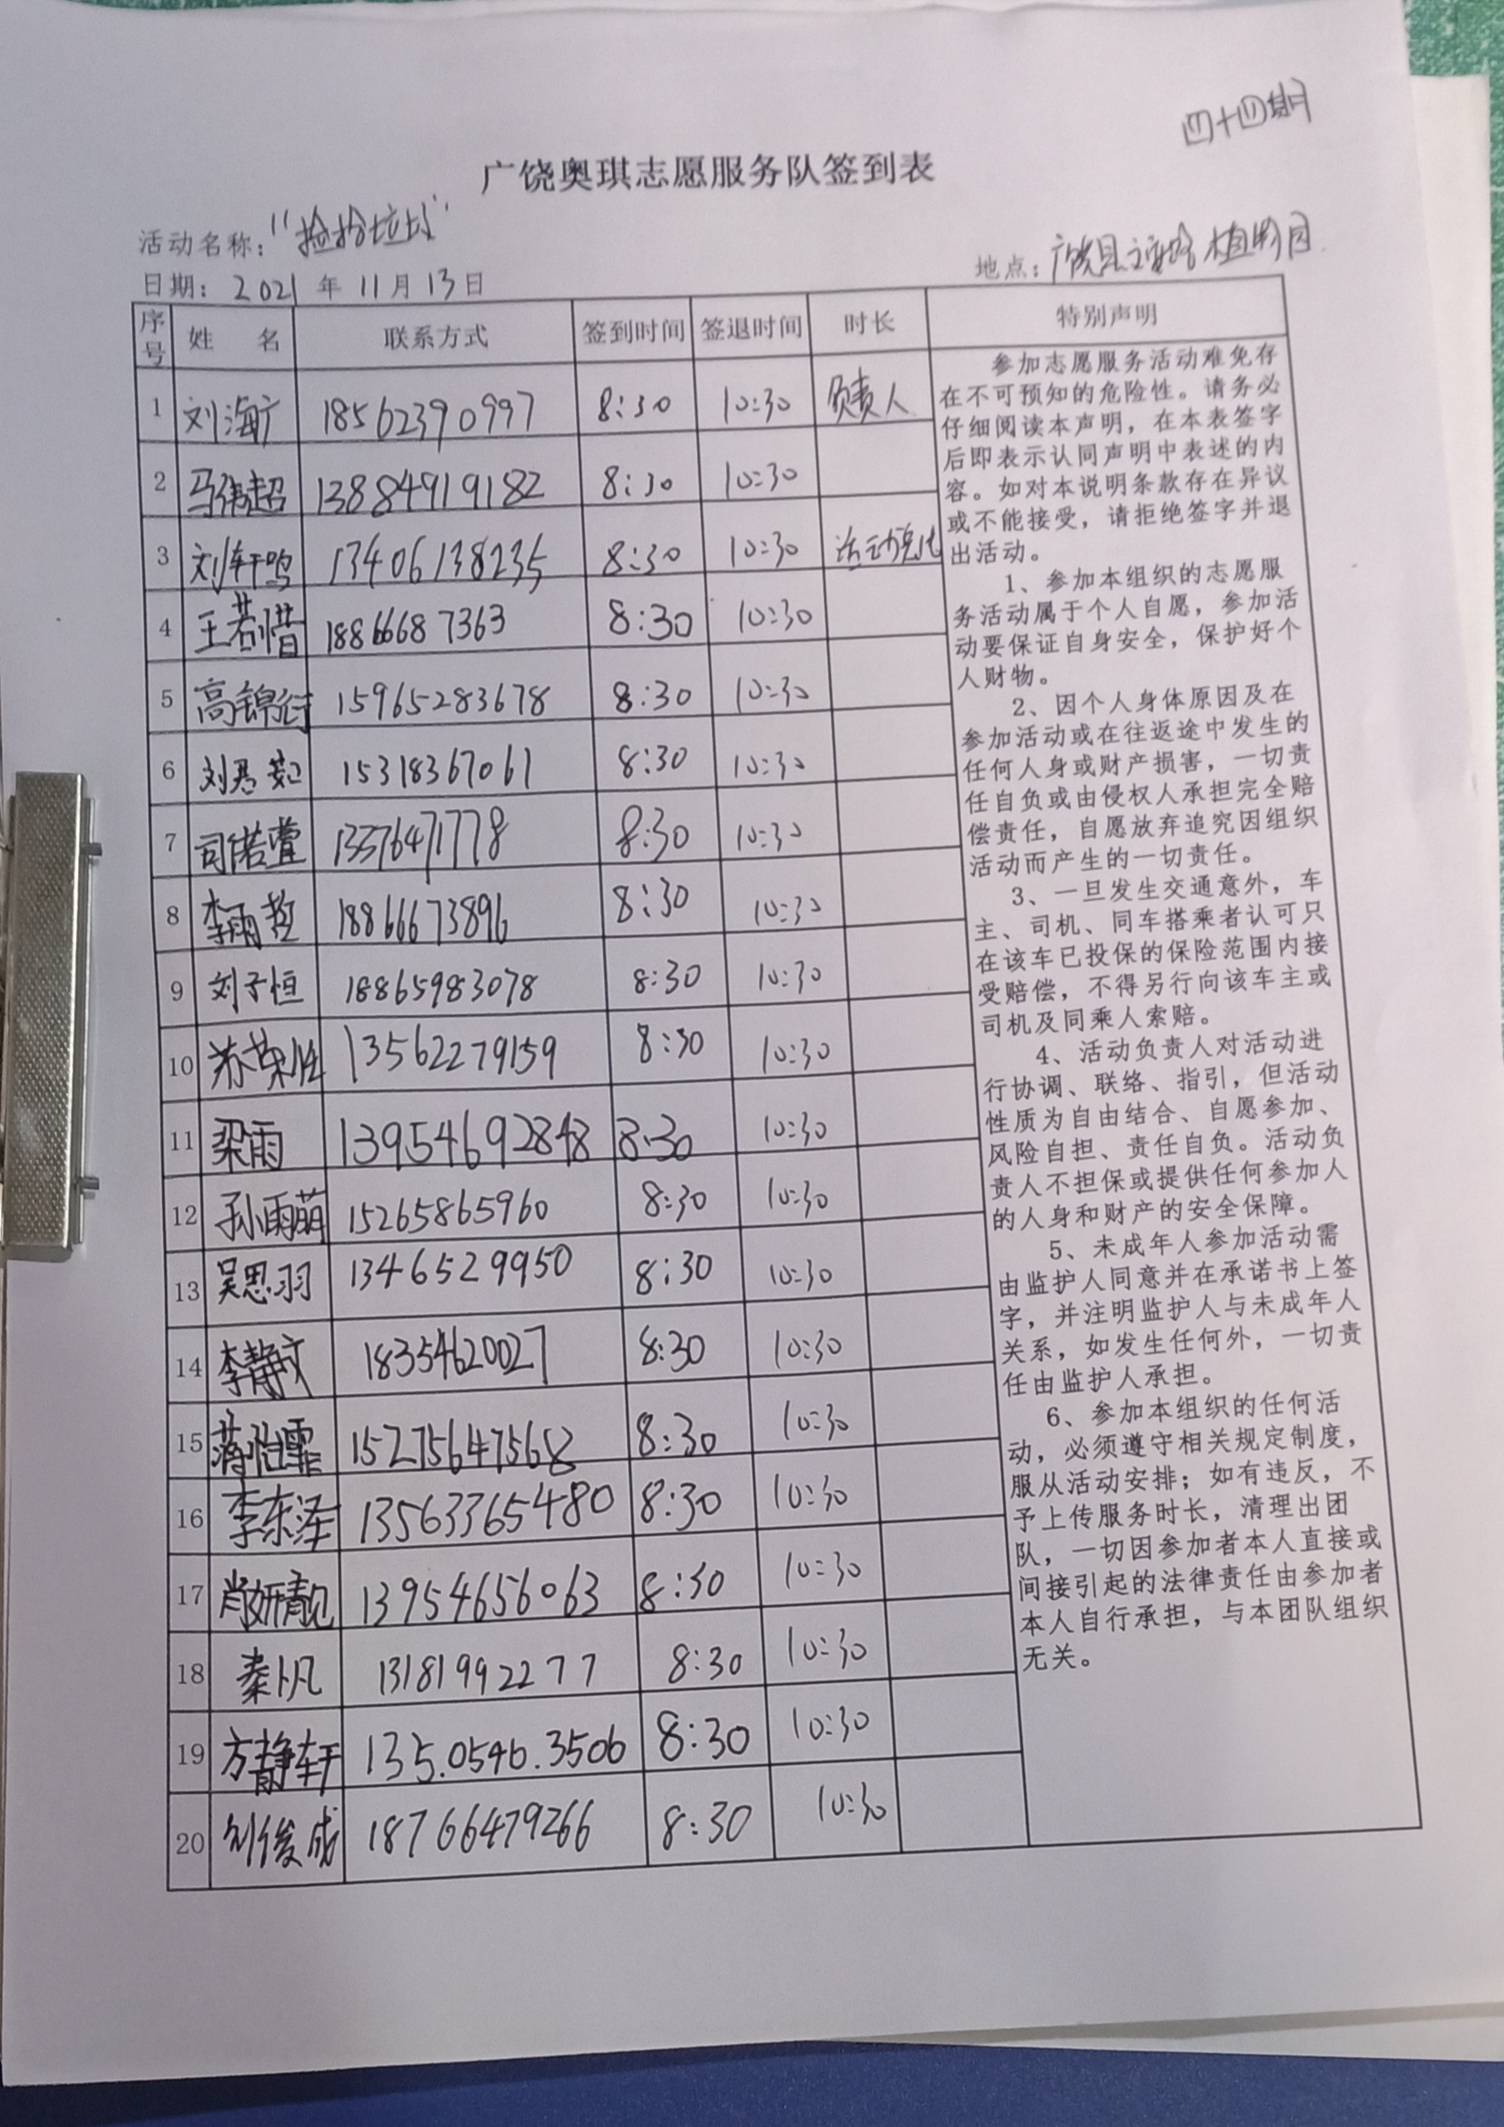 四十四期
广饶奥琪志愿服务队签到表
活动名称："捡拾垃圾"
日期：2021年11月13日 地点：广饶县 植物园
序号 姓 名 联系方式 签到时间 签退时间 时长 特别声明
1 刘海广 18562390997 8:30 10:30 负责人
2 马伟超 13884919182 8:30 10:30
3 刘轩鸣 13406138235 8:30 10:30
4 王若惜 18866687363 8:30 10:30
5 高锦衍 15965283678 8:30 10:30
6 刘君茹 15318367061 8:30 10:30
7 司偌萱 13376471778 8:30 10:30
8 李雨哲 18866673896 8:30 10:30
9 刘子恒 18865983078 8:30 10:30
10 苏荣胜 13562279159 8:30 10:30
11 梁雨 13954692848 8:30 10:30
12 孙雨萌 15265865960 8:30 10:30
13 吴思羽 13465299950 8:30 10:30
14 李静文 18354620027 8:30 10:30
15 蒋怡霏 15275647568 8:30 10:30
16 李东泽 13563365480 8:30 10:30
17 肖妍靓 13954656063 8:30 10:30
18 秦卜凡 13181992277 8:30 10:30
19 方静轩 135.0546.3506 8:30 10:30
20 刘俊成 18766479266 8:30 10:30
参加志愿服务活动难免存
在不可预知的危险性。请务必
仔细阅读本声明，在本表签字
后即表示认同声明中表述的内
容。如对本说明条款存在异议
或不能接受，请拒绝签字并退
出活动。
1、参加本组织的志愿服
务活动属于个人自愿，参加活
动要保证自身安全，保护好个
人财物。
2、因个人身体原因及在
参加活动或在往返途中发生的
任何人身或财产损害，一切责
任自负或由侵权人承担完全赔
偿责任，自愿放弃追究因组织
活动而产生的一切责任。
3、一旦发生交通意外，车
主、司机、同车搭乘者认可只
在该车已投保的保险范围内接
受赔偿，不得另行向该车主或
司机及同乘人索赔。
4、活动负责人对活动进
行协调、联络、指引，但活动
性质为自由结合、自愿参加、
风险自担、责任自负。活动负
责人不担保或提供任何参加人
的人身和财产的安全保障。
5、未成年人参加活动需
由监护人同意并在承诺书上签
字，并注明监护人与未成年人
关系，如发生任何外，一切责
任由监护人承担。
6、参加本组织的任何活
动，必须遵守相关规定制度，
服从活动安排；如有违反，不
予上传服务时长，清理出团
队，一切因参加者本人直接或
间接引起的法律责任由参加者
本人自行承担，与本团队组织
无关。